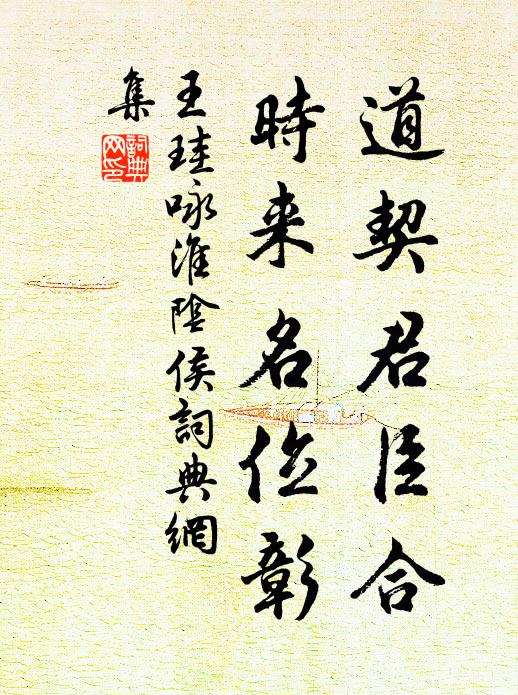 道契君臣合
時来名位彰
王珪咏淮陰侯詞典網
集
詞典
网印